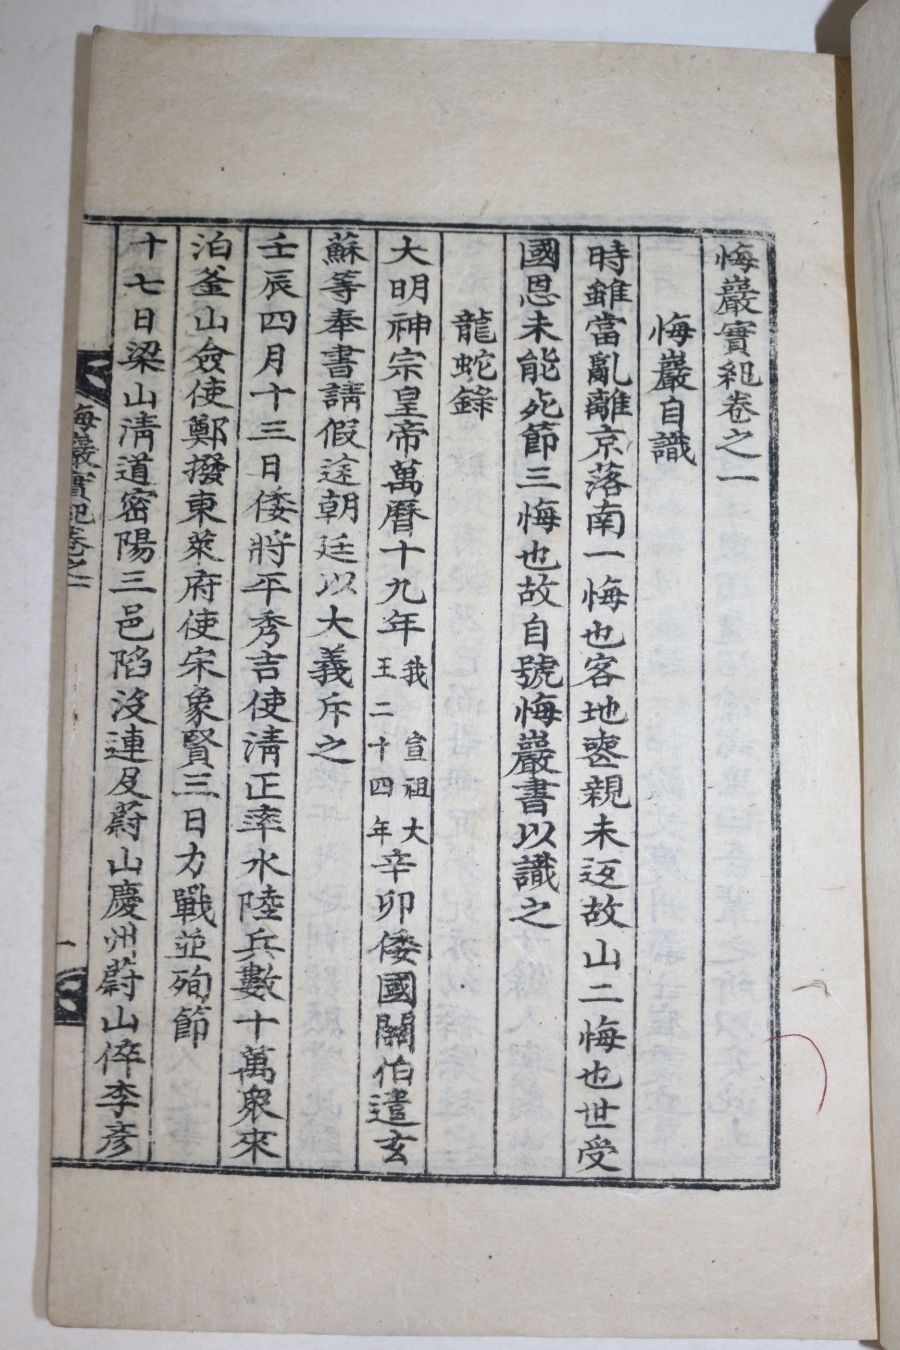 悔巖實紀卷之一
悔巖自識
時雖當亂離京落南一悔也客地喪親未返故山二悔也世受
國恩未能死節三悔也故自號悔巖書以識之
龍蛇錄
大明神宗皇帝萬曆十九年我 宣祖大王二十四年辛卯倭國關伯遣玄
蘇等奉書請假途朝廷以大義斥之
壬辰四月十三日倭將平秀吉使淸正率水陸兵數十萬衆來
泊釜山僉使鄭撥東萊府使宋象賢三日力戰並殉節
十七日梁山淸道密陽三邑陷沒連及蔚山慶州蔚山倅李彦
悔巖實紀卷之一
一